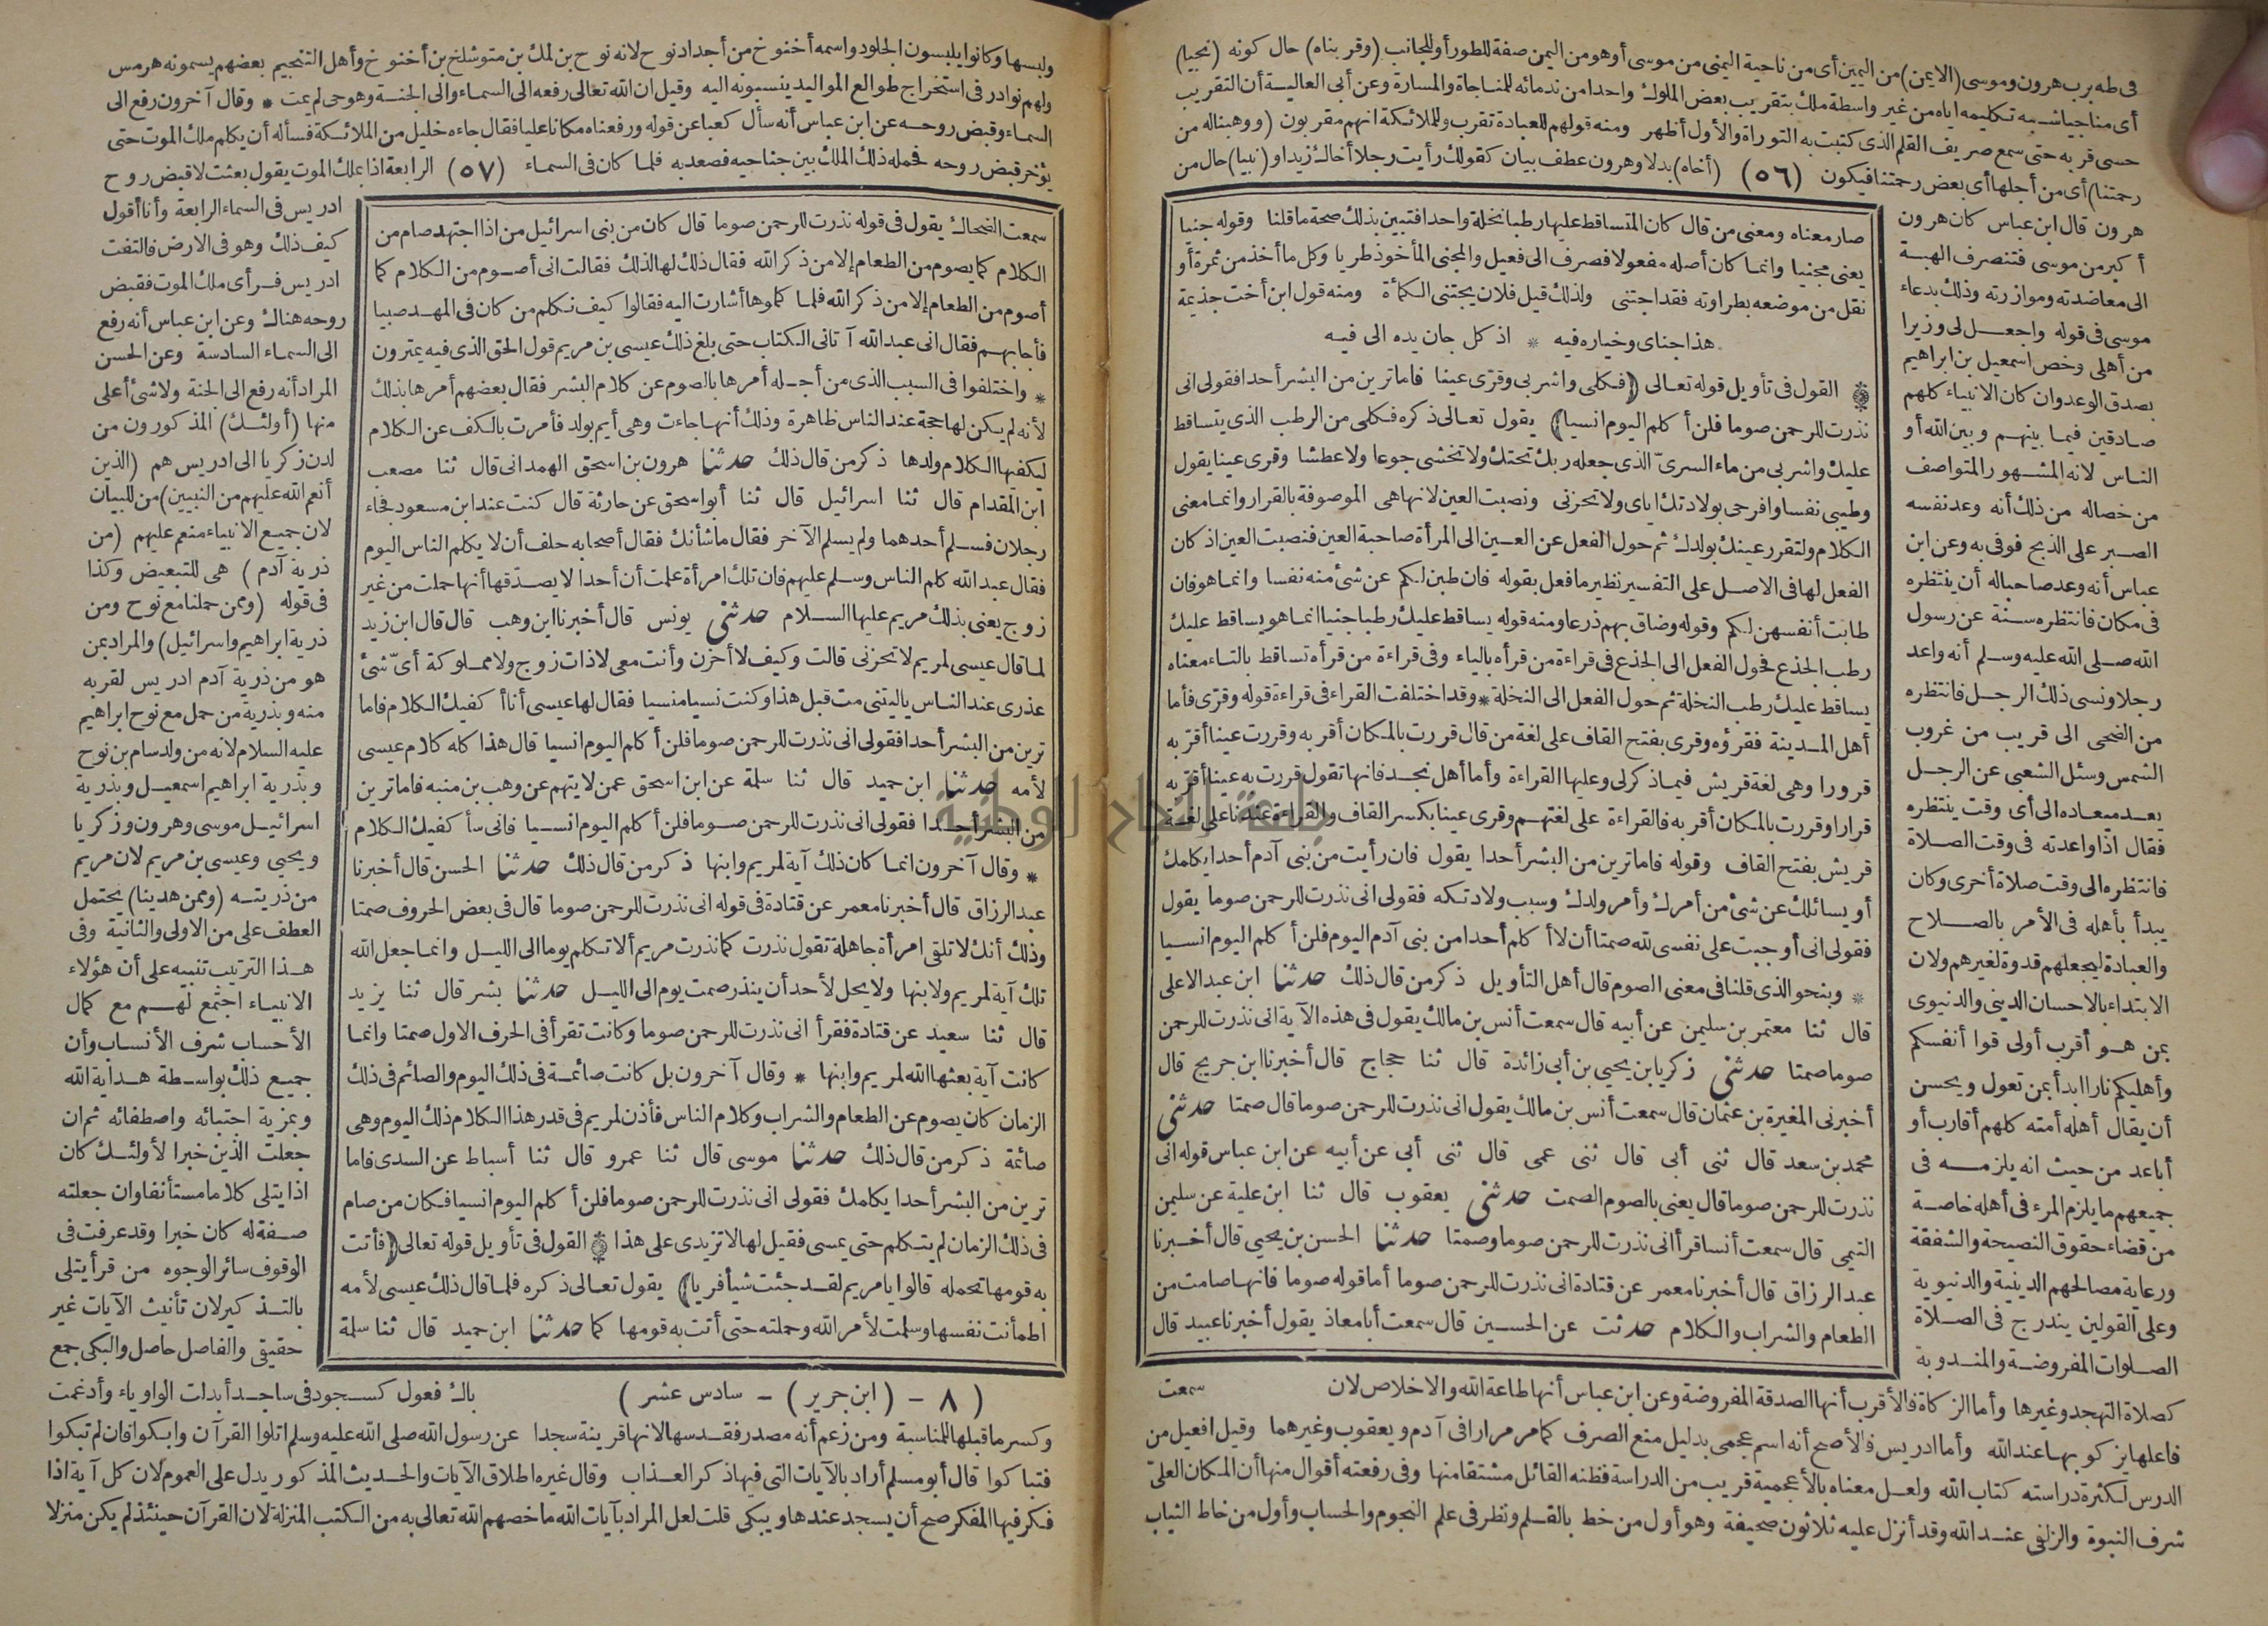 فى طه برب هرون وموسى (الايمن) من اليمين أى من ناحية اليمنى من موسى أو هو من اليمن صفة للطور أو للجانب (وقربناه) حال كونه (نجيا)
أى مناجيا شبه تكليمه اياه من غير واسطة ملك بتقريب بعض الملوك واحدا من ندمائه للمناجاة والمسارة وعن أبى العالية أن التقريب
حسى قربه حتى سمع صريف القلم الذى كتبت به التوراة والأول أظهر ومنه قولهم للعبادة تقرب وللملائكة انهم مقربون (ووهبنا له من
رحمتنا) أى من أجلها أى بعض رحمتنا فيكون (٥٦) (أخاه) بدلا وهرون عطف بيان كقولك رأيت رجلا أخاك زيدا و(نبيا) حال من
هرون قال ابن عباس كان هرون
أكبر من موسى فتنصرف الهبة
الى معاضدته وموازرته وذلك بدعاء
موسى فى قوله واجعل لى وزيرا
من أهلى وخص اسمعيل بن ابراهيم
بصدق الوعد وان كان الانبياء كلهم
صادقين فيما بينهم وبين الله أو
الناس لانه المشهور المتواصف
من خصاله من ذلك أنه وعد نفسه
الصبر على الذبح فوفى به وعن ابن
عباس أنه وعد صاحبا له أن ينتظره
فى مكان فانتظره سنة عن رسول
الله صلى الله عليه وسلم أنه واعد
رجلا ونسى ذلك الرجل فانتظره
من الضحى الى قريب من غروب
الشمس وسئل الشعبى عن الرجل
يعد ميعاده الى أى وقت ينتظره
فقال اذا واعدته فى وقت الصلاة
فانتظره الى وقت صلاة أخرى وكان
يبدأ بأهله فى الأمر بالصلاح
والعبادة ليجعلهم قدوة لغيرهم ولان
الابتداء بالاحسان الدينى والدنيوى
بمن هو أقرب أولى قوا أنفسكم
وأهليكم نارا ابدأ بمن تعول ويحسن
أن يقال أهله أمته كلهم أقارب أو
أباعد من حيث انه يلزمه فى
جميعهم ما يلزم المرء فى أهله خاصة
من قضاء حقوق النصيحة والشفقة
ورعاية مصالحهم الدينية والدنيوية
وعلى القولين يندرج فى الصلاة
الصلوات المفروضة والمندوبة
صار معناه ومعنى من قال كان المتساقط عليها رطبا نخلة واحدا فتبين بذلك صحة ما قلنا وقوله جنيا
يعنى مجنيا وانما كان أصله مفعولا فصرف الى فعيل والمجنى المأخوذ طريا وكل ما أخذ من ثمرة أو
نقل من موضعه بطراوته فقد اجتنى ولذلك قيل فلان يجتنى الكمأة ومنه قول ابن أخت جذيمة
هذا جناى وخياره فيه * اذ كل جان يده الى فيه
القول فى تأويل قوله تعالى (فكلى واشربى وقرى عينا فاما ترين من البشر أحدا فقولى انى
نذرت للرحمن صوما فلن أكلم اليوم انسيا) يقول تعالى ذكره فكلى من الرطب الذى يتساقط
عليك واشربى من ماء السرىّ الذى جعله ربك تحتك ولا تخشى جوعا ولا عطشا وقرى عينا يقول
وطيبى نفسا وافرحى بولادتك اياى ولا تحزنى ونصبت العين لانها هى الموصوفة بالقرار وانما معنى
الكلام ولتقرر عينك بولدك ثم حول الفعل عن العين الى المرأة صاحبة العين فنصبت العين اذ كان
الفعل لها فى الاصل على التفسير نظير ما فعل بقوله فان طبن لكم عن شئ منه نفسا وانما هو فان
طابت أنفسهن لكم وقوله وضاق بهم ذرعا ومنه قوله يساقط عليك رطبا جنيا انما هو يساقط عليك
رطب الجذع فحول الفعل الى الجذع فى قراءة من قرأه بالياء وفى قراءة من قرأه تساقط بالتاء معناه
يساقط عليك رطب النخلة ثم حول الفعل الى النخلة * وقد اختلفت القراء فى قراءة قوله وقرّى فأما
أهل المدينة فقرؤه وقرى بفتح القاف على لغة من قال قررت بالمكان أقر به وقررت عينا أقر به
قرورا وهى لغة قريش فيما ذكر لى وعليها القراءة وأما أهل نجد فانها تقول قررت به عينا أقر به
قرارا وقررت بالمكان أقر به فالقراءة على لغتهم وقرى عينا بكسر القاف والقراءة عندنا على لغة
قريش بفتح القاف وقوله فاما ترين من البشر أحدا يقول فان رأيت من بنى آدم أحدا يكلمك
أو يسائلك عن شئ من أمرك وأمر ولدك وسبب ولادتكه فقولى انى نذرت للرحمن صوما يقول
فقولى انى أوجبت على نفسى لله صمتا أن لا أكلم أحدا من بنى آدم اليوم فلن أكلم اليوم انسيا
* وبنحو الذى قلنا فى معنى الصوم قال أهل التأويل ذكر من قال ذلك حدثنا ابن عبد الاعلى
قال ثنا معتمر بن سليمن عن أبيه قال سمعت أنس بن مالك يقول فى هذه الآية انى نذرت للرحمن
صوما صمتا حدثنى زكريا بن يحيى بن أبى زائدة قال ثنا حجاج قال أخبرنا ابن جريج قال
أخبرنى المغيرة بن عثمان قال سمعت أنس بن مالك يقول انى نذرت للرحمن صوما قال صمتا حدثنى
محمد بن سعد قال ثنى أبى قال ثنى عمى قال ثنى أبى عن أبيه عن ابن عباس قوله انى
نذرت للرحمن صوما قال يعنى بالصوم الصمت حدثنى يعقوب قال ثنا ابن علية عن سليمن
التيمى قال سمعت أنسا قرأ انى نذرت للرحمن صوما وصمتا حدثنا الحسن بن يحيى قال أخبرنا
عبد الرزاق قال أخبرنا معمر عن قتادة انى نذرت للرحمن صوما أما قوله صوما فانها صامت من
الطعام والشراب والكلام حدثت عن الحسين قال سمعت أبا معاذ يقول أخبرنا عبيد قال
سمعت
كصلاة التهجد وغيرها وأما الزكاة فالأقرب أنها الصدقة المفروضة وعن ابن عباس أنها طاعة الله والاخلاص لان
فاعلها يزكو بها عند الله وأما ادريس فالأصح أنه اسم عجمى بدليل منع الصرف كما مر مرارا فى آدم ويعقوب وغيرهما وقيل افعيل من
الدرس لكثرة دراسته كتاب الله ولعل معناه بالأعجمية قريب من الدراسة فظنه القائل مشتقا منها وفى رفعته أقوال منها أن المكان العلىّ
شرف النبوة والزلفى عند الله وقد أنزل عليه ثلاثون صحيفة وهو أول من خط بالقلم ونظر فى علم النجوم والحساب وأول من خاط الثياب
ولبسها وكانوا يلبسون الجلود واسمه أخنوخ من أجداد نوح لانه نوح بن لمك بن متوشلخ بن أخنوخ وأهل التنجيم بعضهم يسمونه هرمس
ولهم نوادر فى استخراج طوالع المواليد ينسبونه اليه وقيل ان الله تعالى رفعه الى السماء والى الجنة وهو حى لم يمت * وقال آخرون رفع الى
السماء وقبض روحه عن ابن عباس أنه سأل كعبا عن قوله ورفعناه مكانا عليا فقال جاءه خليل من الملائكة فسأله أن يكلم ملك الموت حتى
يؤخر قبض روحه فحمله ذلك الملك بين جناحيه فصعد به فلما كان فى السماء (٥٧) الرابعة اذا بملك الموت يقول بعثت لاقبض روح
سمعت الضحاك يقول فى قوله نذرت للرحمن صوما قال كان من بنى اسرائيل من اذا اجتهد صام من
الكلام كما يصوم من الطعام إلا من ذكر الله فقال ذلك لها لذلك فقالت انى أصوم من الكلام كما
أصوم من الطعام إلا من ذكر الله فلما كلموها أشارت اليه فقالوا كيف نكلم من كان فى المهد صبيا
فأجابهم فقال انى عبد الله آتانى الكتاب حتى بلغ ذلك عيسى بن مريم قول الحق الذى فيه يمترون
* واختلفوا فى السبب الذى من أجله أمرها بالصوم عن كلام البشر فقال بعضهم أمرها بذلك
لأنه لم يكن لها حجة عند الناس ظاهرة وذلك أنها جاءت وهى أيم بولد فأمرت بالكف عن الكلام
ليكفيها الكلام ولدها ذكر من قال ذلك حدثنا هرون بن اسحق الهمدانى قال ثنا مصعب
ابن المقدام قال ثنا اسرائيل قال ثنا أبو اسحق عن حارثة قال كنت عند ابن مسعود فجاء
رجلان فسلم أحدهما ولم يسلم الآخر فقال ما شأنك فقال أصحابه حلف أن لا يكلم الناس اليوم
فقال عبد الله كلم الناس وسلم عليهم فان تلك امرأة علمت أن أحدا لا يصدّقها أنها حملت من غير
زوج يعنى بذلك مريم عليها السلام حدثنى يونس قال أخبرنا ابن وهب قال قال ابن زيد
لما قال عيسى لمريم لا تحزنى قالت وكيف لا أحزن وأنت معى لا ذات زوج ولا مملوكة أىّ شئ
عذرى عند الناس ياليتنى مت قبل هذا وكنت نسيا منسيا فقال لها عيسى أنا أكفيك الكلام فاما
ترين من البشر أحدا فقولى انى نذرت للرحمن صوما فلن أكلم اليوم انسيا قال هذا كله كلام عيسى
لأمه حدثنا ابن حميد قال ثنا سلمة عن ابن اسحق عمن لا يتهم عن وهب بن منبه فاما ترين
من البشر أحدا فقولى انى نذرت للرحمن صوما فلن أكلم اليوم انسيا فانى سأكفيك الكلام
* وقال آخرون انما كان ذلك آية لمريم وابنها ذكر من قال ذلك حدثنا الحسن قال أخبرنا
عبد الرزاق قال أخبرنا معمر عن قتادة فى قوله انى نذرت للرحمن صوما قال فى بعض الحروف صمتا
وذلك أنك لا تلقى امرأة جاهلة تقول نذرت كما نذرت مريم ألا تكلم يوما الى الليل وانما جعل الله
تلك آية لمريم ولابنها ولا يحل لأحد أن ينذر صمت يوم الى الليل حدثنا بشر قال ثنا يزيد
قال ثنا سعيد عن قتادة فقرأ انى نذرت للرحمن صوما وكانت تقرأ فى الحرف الاول صمتا وانما
كانت آية بعثها الله لمريم وابنها * وقال آخرون بل كانت صائمة فى ذلك اليوم والصائم فى ذلك
الزمان كان يصوم عن الطعام والشراب وكلام الناس فأذن لمريم فى قدر هذا الكلام ذلك اليوم وهى
صائمة ذكر من قال ذلك حدثنا موسى قال ثنا عمرو قال ثنا أسباط عن السدى فاما
ترين من البشر أحدا يكلمك فقولى انى نذرت للرحمن صوما فلن أكلم اليوم انسيا فكان من صام
فى ذلك الزمان لم يتكلم حتى يمسى فقيل لها لا تزيدى على هذا القول فى تأويل قوله تعالى (فأتت
به قومها تحمله قالوا يا مريم لقد جئت شيأ فريا) يقول تعالى ذكره فلما قال ذلك عيسى لأمه
اطمأنت نفسها وسلمت لأمر الله وحملته حتى أتت به قومها كما حدثنا ابن حميد قال ثنا سلمة
ادريس فى السماء الرابعة وأنا أقول
كيف ذلك وهو فى الارض فالتفت
ادريس فرأى ملك الموت فقبض
روحه هناك وعن ابن عباس أنه رفع
الى السماء السادسة وعن الحسن
المراد أنه رفع الى الجنة ولا شئ أعلى
منها (أولئك) المذكورون من
لدن زكريا الى ادريس هم (الذين
أنعم الله عليهم من النبيين) من للبيان
لان جميع الانبياء منعم عليهم (من
ذرية آدم) هى للتبعيض وكذا
فى قوله (وممن حملنا مع نوح ومن
ذرية ابراهيم واسرائيل) والمراد بمن
هو من ذرية آدم ادريس لقربه
منه وبذرية من حمل مع نوح ابراهيم
عليه السلام لانه من ولد سام بن نوح
وبذرية ابراهيم اسمعيل وبذرية
اسرائيل موسى وهرون وزكريا
ويحيى وعيسى بن مريم لان مريم
من ذريته (وممن هدينا) يحتمل
العطف على من الاولى والثانية وفى
هذا الترتيب تنبيه على أن هؤلاء
الانبياء اجتمع لهم مع كمال
الأحساب شرف الأنساب وأن
جميع ذلك بواسطة هداية الله
وبمزية اجتبائه واصطفائه ثم ان
جعلت الذين خبرا لأولئك كان
اذا يتلى كلاما مستأنفا وان جعلته
صفة له كان خبرا وقد عرفت فى
الوقوف سائر الوجوه من قرأ يتلى
بالتذكير لان تأنيث الآيات غير
حقيقى والفاصل حاصل والبكى جمع
(٨ - (ابن جرير) - سادس عشر) باك فعول كسجود فى ساجد أبدلت الواو ياء وأدغمت
وكسر ما قبلها للمناسبة ومن زعم أنه مصدر فقد سها لانها قرينة سجدا عن رسول الله صلى الله عليه وسلم اتلوا القرآن وابكوا فان لم تبكوا
فتباكوا قال أبو مسلم أراد بالآيات التى فيها ذكر العذاب وقال غيره اطلاق الآيات والحديث المذكور يدل على العموم لان كل آية اذا
فكر فيها المفكر صح أن يسجد عندها ويبكى قلت لعل المراد بآيات الله ما خصهم الله تعالى به من الكتب المنزلة لان القرآن حينئذ لم يكن منزلا
جامعة النجاح الوطنية